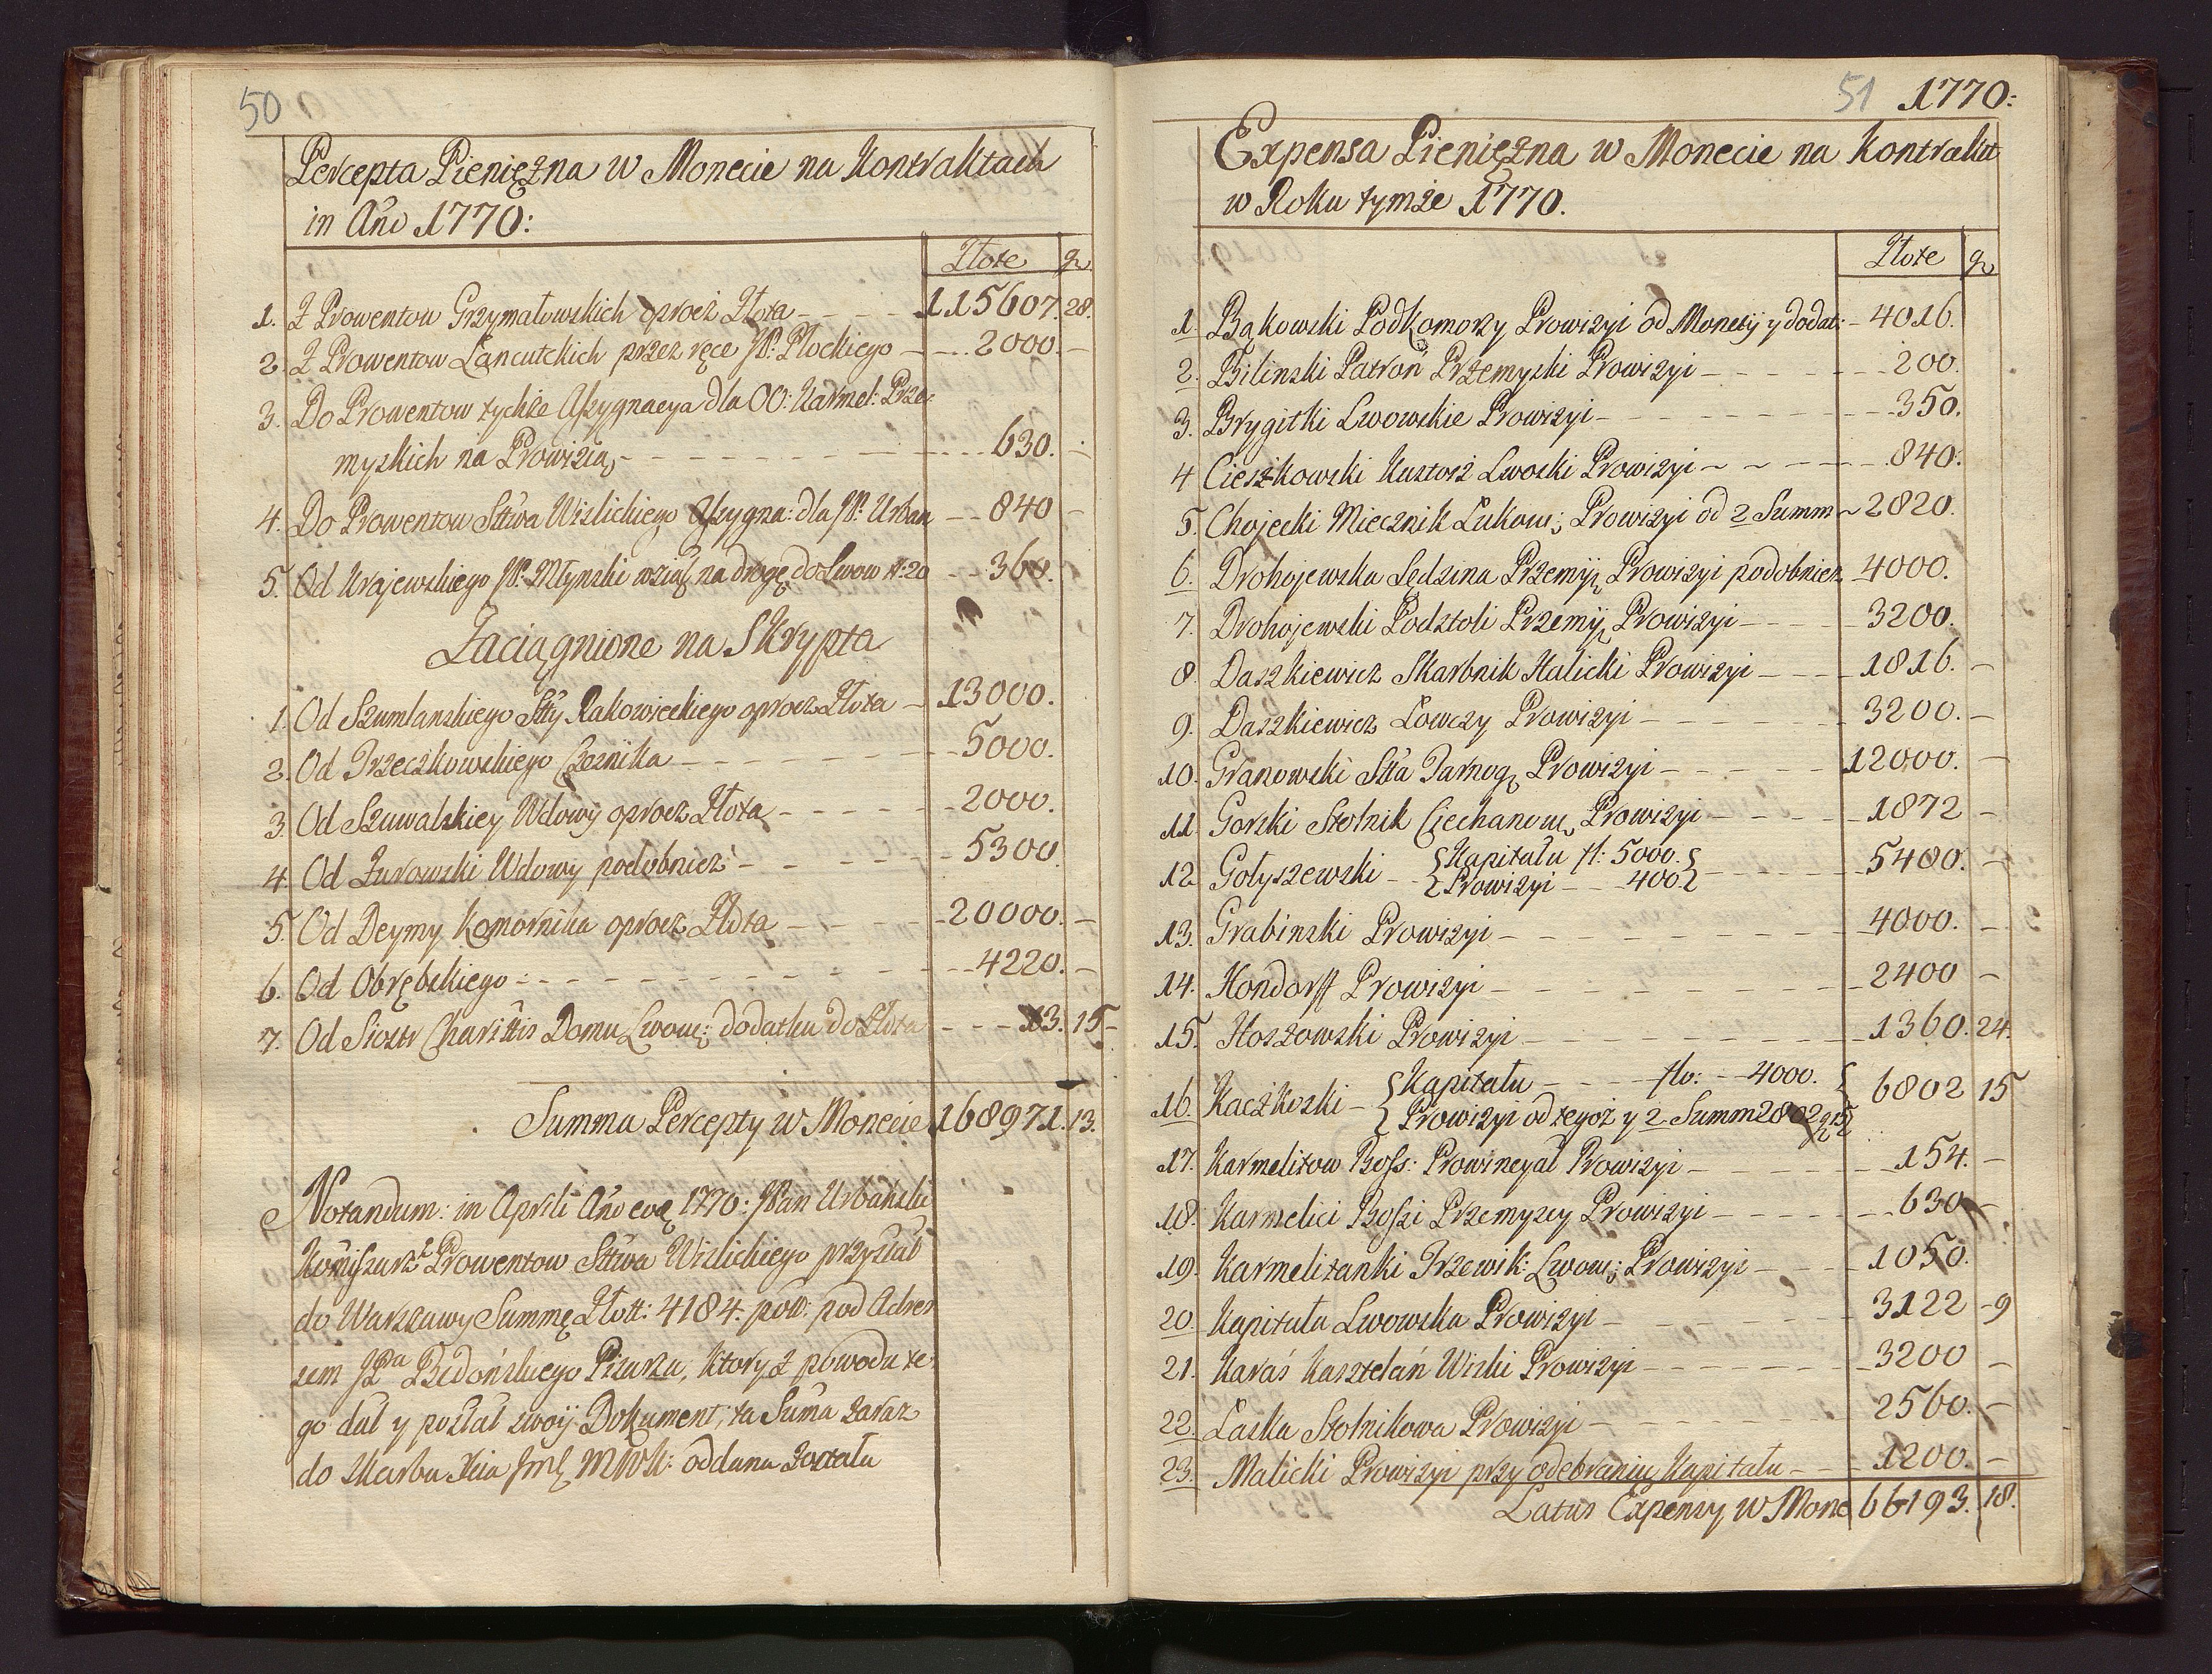 50
Percepta Pieniężna w Monecie na Kontraktach
in Año 1770:
Złote gr
1. Z Prowentow Grzymałowskich oprocz Złota - - - 115607. 28.
2. Z Prowentow Łancutckich przez ręce JP: Płockiego - - 2000. -
3. Do Prowentow tychże Assygnacya dla OO: Karmel: Prze-
myskich na Prowizią - - - - - - 630. -
4. Do Prowentow Sttwa Wislickiego Assygna: dla JP: Urban - - 840 -
5. Od Krajewskiego JP: Młynski wziął na drogę do Lwow #: 20 - - 360.
Zaciągnione na Skrypta
1. Od Szumlanskiego Stty Rakowieckiego oprocz Złota - 13000.
2. Od Trzeczkowskiego Czesnika - - - - - - 5000.
3. Od Szuwalskiey Wdowy oprocz Złota - - - - 2000.
4. Od Żurowski Wdowy podobniez - - - - - 5300.
5. Od Deymy Komornika oprocz Złota - - - - 20000. -
6. Od Obrębskiego - - - - - - - - 4220. -
7. Od Siostr Charittis Domu Lwow: dodatku do Złota - - - 13. 15 -
Summa Percepty w Monecie 168971. 13.
Notandum: in Aprili Año eoq 1770: JPan Urbański
Kom̃issarz Prowentow Sttwa Wislickiego przysłał
do Warszawy Summę Złott: 4184. pow: pod Adres
sem JPa Bedońskiego Pisarza, ktory z powodu te
go dał y posłał swoij Dokument, ta Sum̃a zaraz
do Skarbu Xcia Jmċi MWK: oddana została
51 1770:
Expensa Pieniężna w Monecie na Kontrakt
w Roku tymże 1770.
Złote gr
1. Bąkowski PodKomorzy Prowizyi od Monetij y dodat: - 4016.
2. Bilinski Patron Przemyski Prowizyi - - - - - 200.
3. Brygitki Lwowskie Prowizyi - - - - - - 350.
4 Cieszkowski Kustosz Lwoski Prowizyi - - - - 840.
5. Chojecki Miecznik Łukow: Prowizyi od 2 Summ - 2820.
6. Drohojewska Sędzina Przemy: Prowizyi podobniez 4000.
7. Drohojewski Podstoli Przemy: Prowizyi - - - 3200.
8. Daszkiewicz Skarbnik Halicki Prowizyi - - - 1816. -
9. Daszkiewicz Łowczy Prowizyi - - - - - 3200. -
10. Granowski Stta Tarnog: Prowizyi - - - - 12000. -
11 Gorski Stolnik Ciechanow: Prowizyi - - - - 1872 -
12 Gołyszewski - { Kapitału fl: 5000. } - - - 5400. -
{ Prowizyi - - 400. }
13. Grabinski Prowizyi - - - - - - 4000. -
14. Hondorff Prowizyi - - - - - - 2400 -
15. Hoszowski Prowizyi - - - - - - 1360. 24.
16. Kaczkoski - { Kapitału - - - flo: - 4000. { 6802 15
{ Prowizyi od tegoż y 2 Summ 2802 gr 15 {
17. Karmelitow Boss: Prowincyał Prowizyi - - - - 154. -
18. Karmelici Bossi Przemyscy Prowizyi - - - - 630 -
19. Karmelitanki Trzewik: Lwow: Prowizyi - - - 1050.
20. Kapituła Lwowska Prowizyi - - - - - 3122 - 9
21. Karaś Kasztelań Wiski Prowizyi - - - - - 3200 -
22. Laska Stolnikowa Prowizyi - - - - - 2560. -
23. Malicki Prowizyi przy odebraniu Kapitału - - 1200. -
Latus Expensy w Mone 66193. 18.